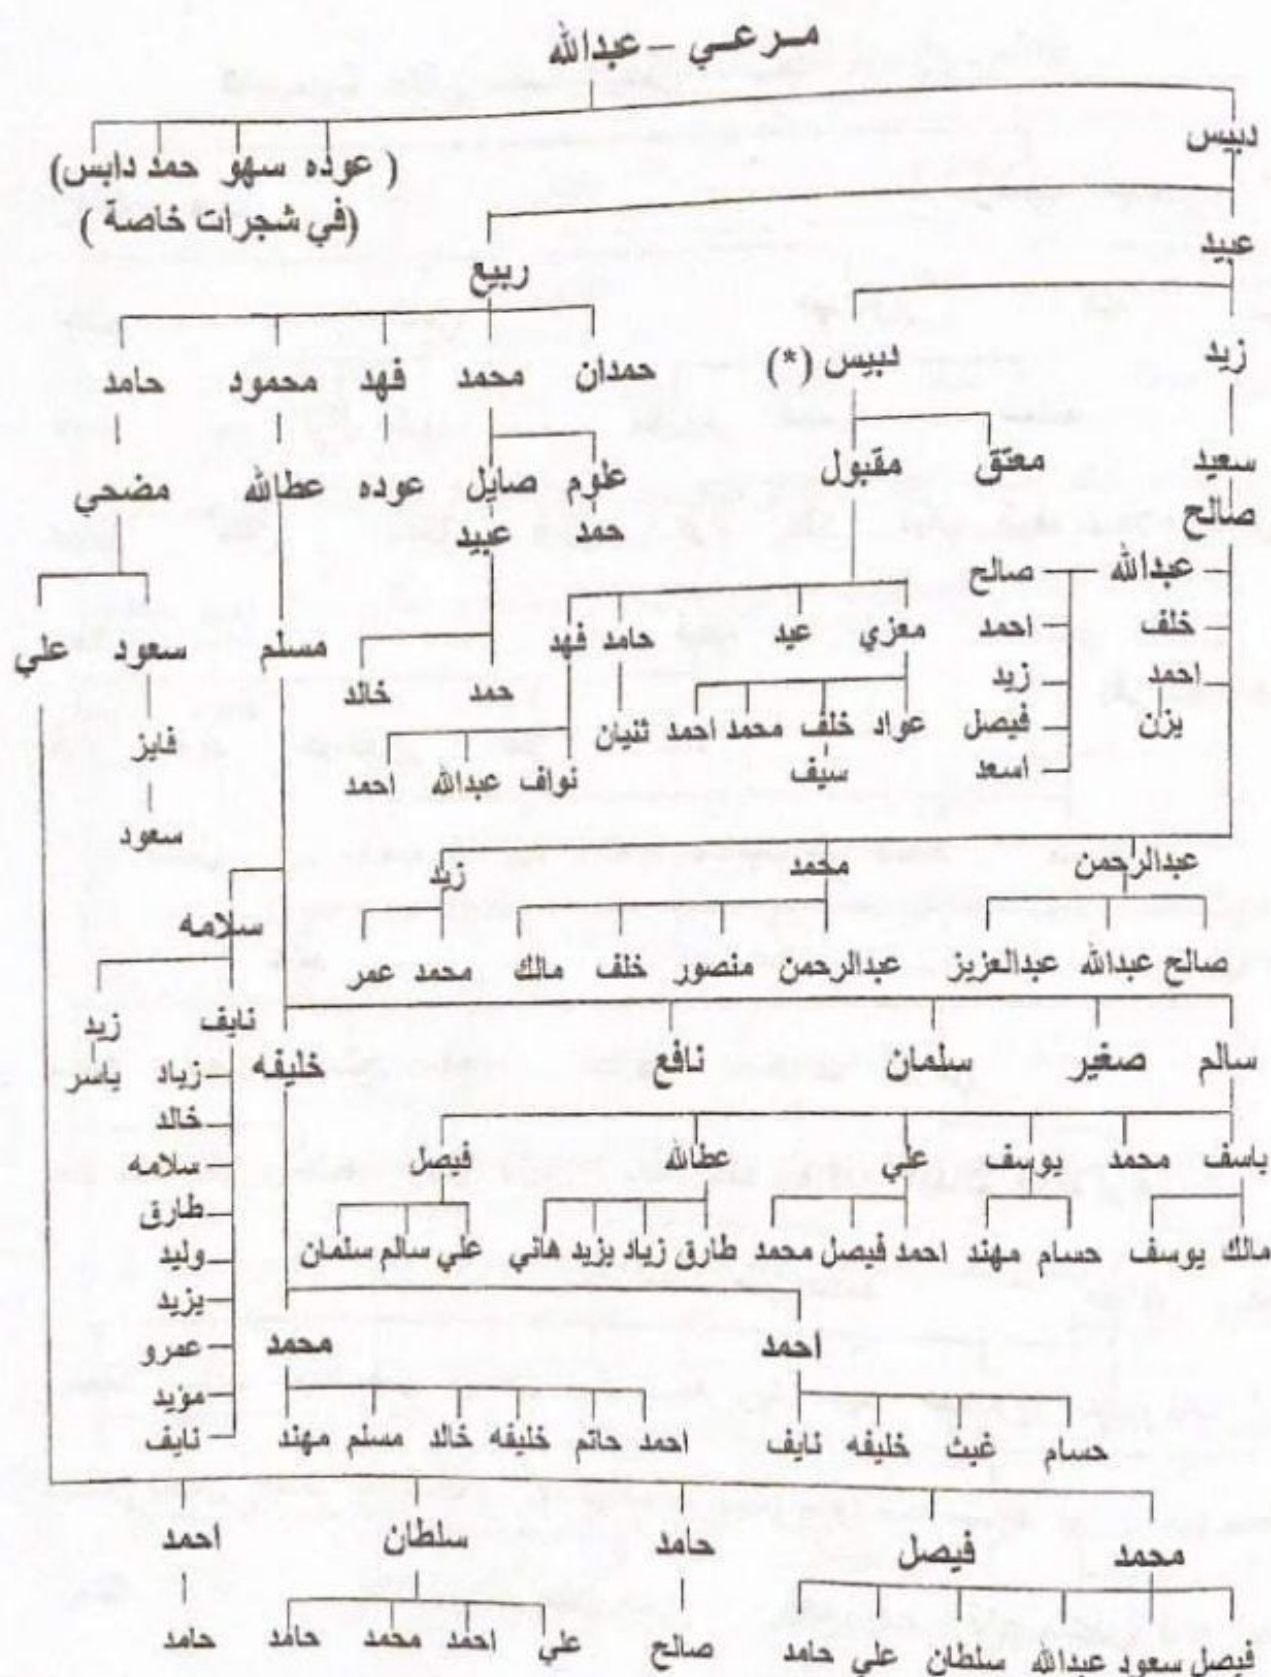 مرعي - عبدالله
دبيس
( عوده سهو حمد دابس)
(في شجرات خاصة )
عبيد
ربيع
زيد
دبيس (*)
حمدان محمد فهد محمود حامد
سعيد
معتق مقبول
علوم صايل عوده عطالله مضحي
صالح
حمد عبيد
عبدالله صالح
خلف احمد
معزي عيد حامد فهد
مسلم سعود علي
احمد زيد
حمد خالد
يزن فيصل
عواد خلف محمد احمد ثنيان
سيف
نواف عبدالله احمد
فايز
اسعد
سعود
عبدالرحمن محمد زيد
سلامه
صالح عبدالله عبدالعزيز عبدالرحمن منصور خلف مالك محمد عمر
نايف زيد
سالم صغير سلمان نافع خليفه
زياد ياسر
خالد
ياسف محمد يوسف علي عطالله فيصل
سلامه
طارق
مالك يوسف حسام مهند احمد فيصل محمد طارق زياد يزيد هاني علي سالم سلمان
وليد
يزيد
احمد محمد
عمرو
مؤيد
نايف
حسام غيث خليفه نايف احمد حاتم خليفه خالد مسلم مهند
محمد فيصل حامد سلطان احمد
فيصل سعود عبدالله سلطان علي حامد صالح علي احمد محمد حامد حامد